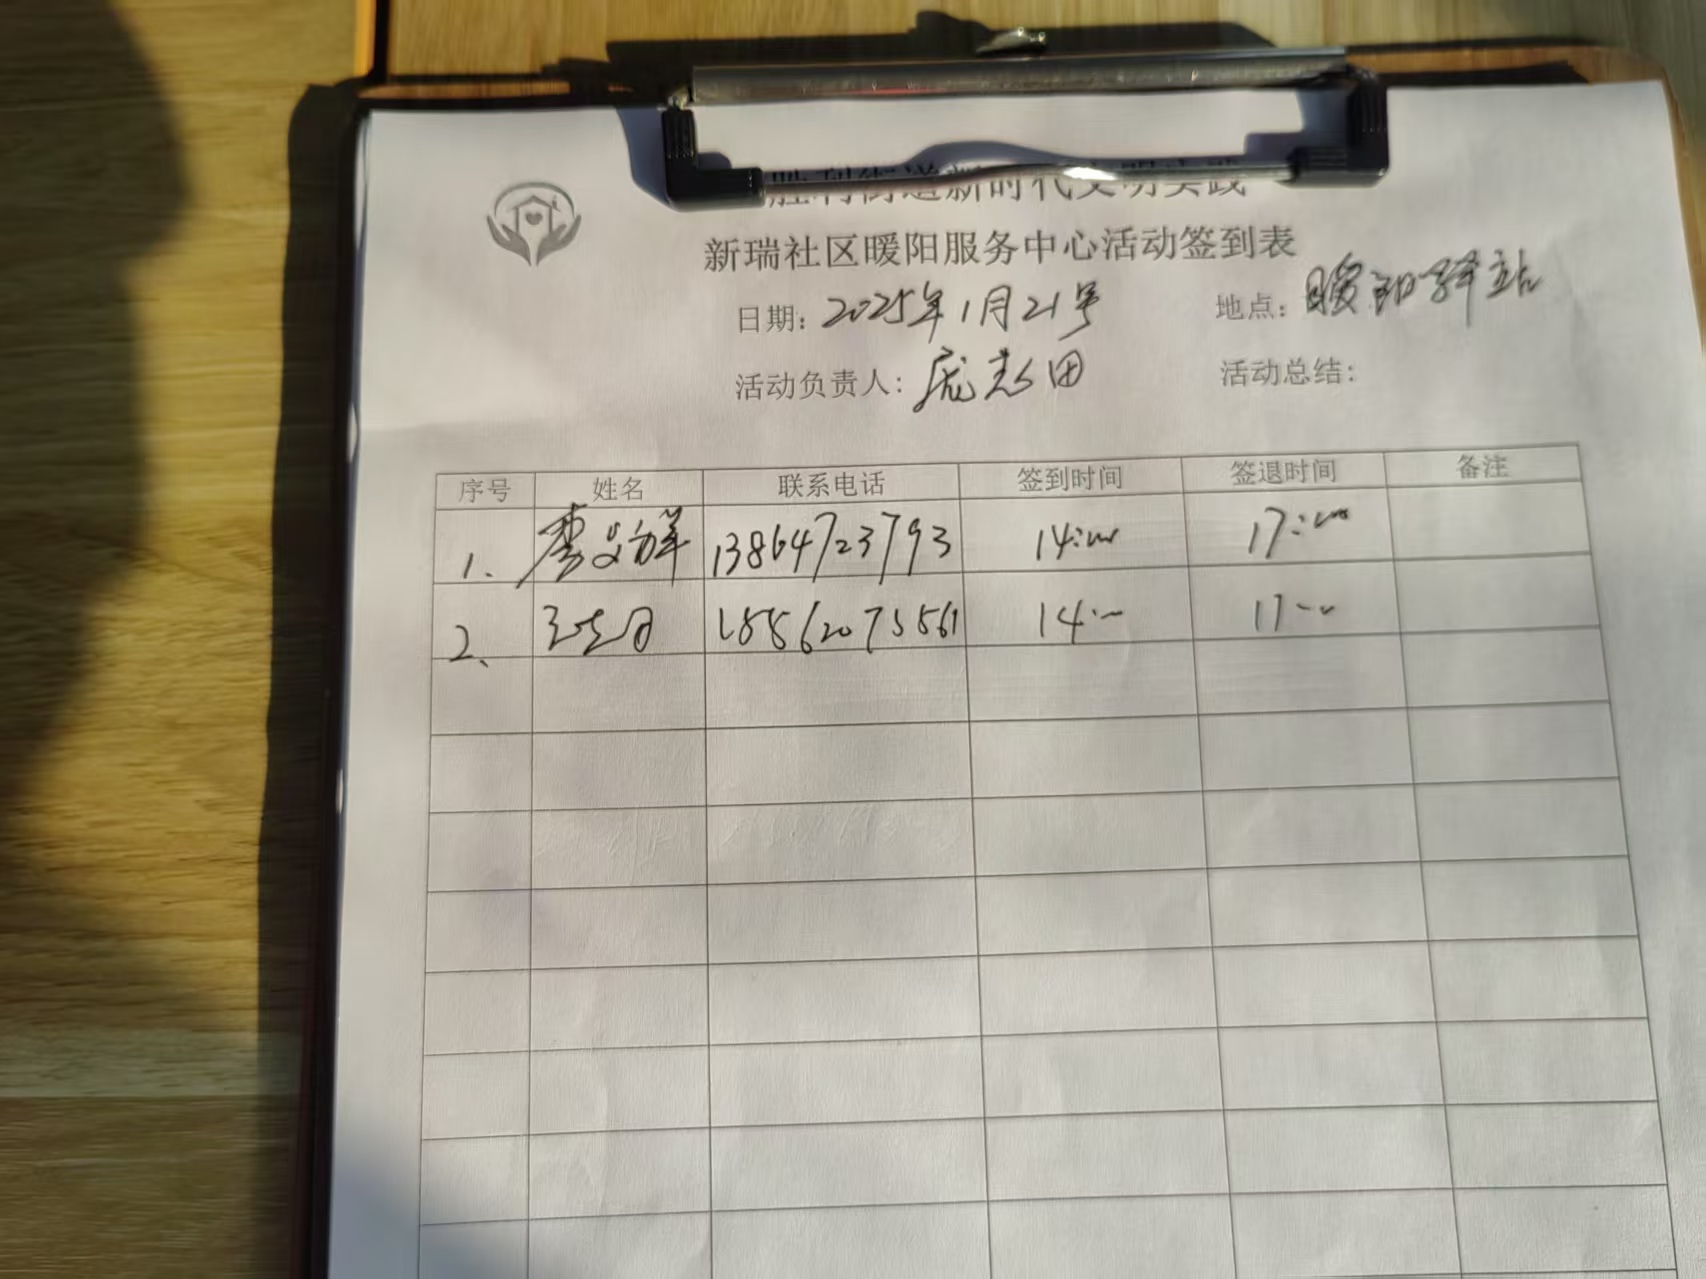 胜利街道新时代文明实践
新瑞社区暖阳服务中心活动签到表
日期: 2025年1月21号 地点: 暖阳驿站
活动负责人: 庞志田 活动总结:
序号 姓名 联系电话 签到时间 签退时间 备注
1. 13864723793 14:00 17:00
2、 14:00 17:00